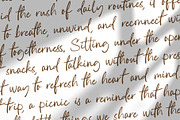 d the rush of daily routines, it offe
to breathe, unwind, and reconnect w
f togetherness. Sitting under the open
snacks, and talking without the press
t way to refresh the heart and mind
trip, a picnic is a reminder that hap
little things we share with the